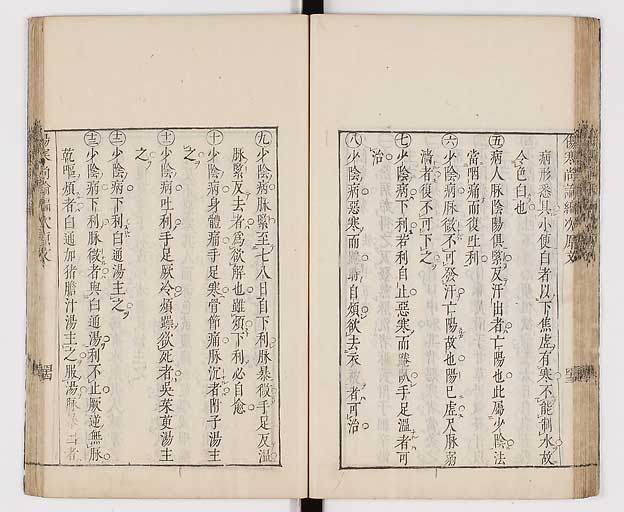 傷寒尚論編次原文
病形悉具小便白者以下焦虛有寒不能制水故
令色白也
五 病人脉陰陽俱緊反汗出者亡陽也此屬少陰法
當咽痛而復吐利
六 少陰病脉微不可發汗亡陽故也陽已虛尺脉弱
濇者復不可下之
七 少陰病下利若利自止惡寒而踡臥手足溫者可
治
八 少陰病惡寒而踡時自煩欲去衣者可治
九 少陰病脉緊至七八日自下利脉暴微手足反溫
脉緊反去者爲欲解也雖煩下利必自愈
十 少陰病身體痛手足寒骨節痛脉沉者附子湯主
之
十一 少陰病吐利手足厥冷煩躁欲死者吳茱萸湯主
之
十二 少陰病下利白通湯主之
十三 少陰病下利脉微者與白通湯利不止厥逆無脉
乾嘔煩者白通加猪膽汁湯主之服湯脉暴出者
傷寒尚論編次原文